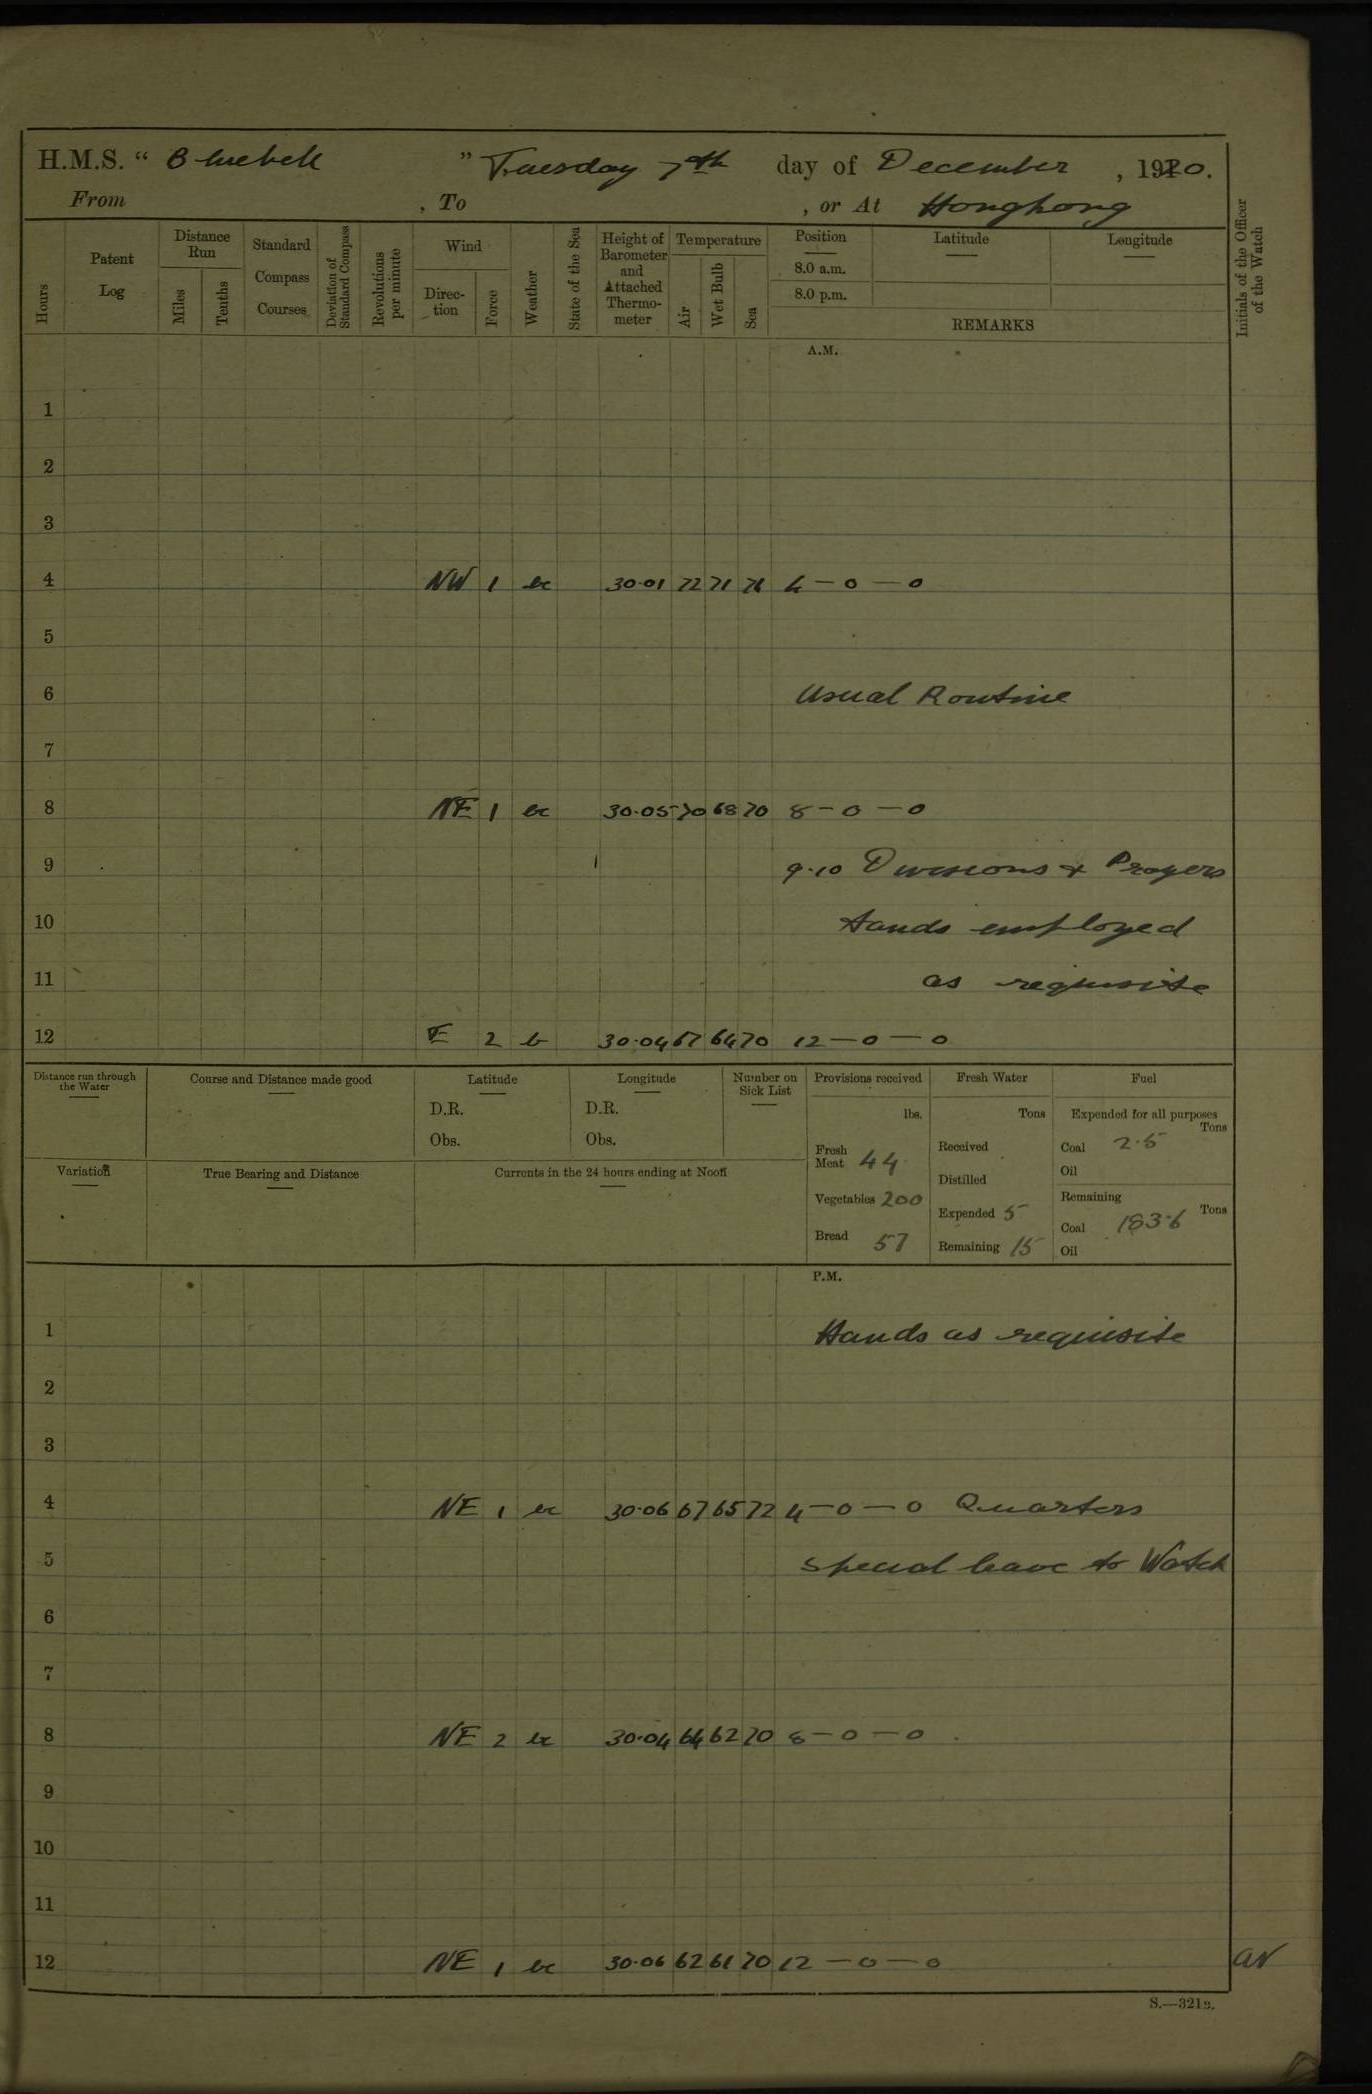 H.M.S. “ Bluebell ” Tuesday 7th day of December , 1920.
From , To , or At Hongkong
Hours Patent Log Distance Run Miles Tenths Standard Compass Courses Deviation of Standard Compass Revolutions per minute Wind Direction Force Weather State of the Sea Height of Barometer and Attached Thermometer Temperature Air Wet Bulb Sea Position 8.0 a.m. 8.0 p.m. Latitude Longitude REMARKS Initials of the Officer of the Watch
A.M.
1
2
3
4 NW 1 bc 30·01 72 71 71 4 — 0 — 0
5
6 Usual Routine
7
8 NE 1 bc 30·05 70 68 70 8 — 0 — 0
9 9·10 Divisions & Prayers
10 Hands employed
11 as requisite
12 E 2 b 30·04 67 64 70 12 — 0 — 0
Distance run through the Water Course and Distance made good Latitude Longitude Number on Sick List Provisions received Fresh Water Fuel
D.R. D.R. lbs. Tons Expended for all purposes Tons
Obs. Obs. Fresh Meat 44 Received Coal 2·5
Oil
Variation True Bearing and Distance Currents in the 24 hours ending at Noon Distilled
Vegetables 200 Expended 5 Remaining Tons
Coal 183·6
Bread 57 Remaining 15 Oil
P.M.
1 Hands as requisite
2
3
4 NE 1 bc 30·06 67 65 72 4 — 0 — 0 Quarters
5 Special leave to Watch
6
7
8 NE 2 bc 30·04 64 62 70 8 — 0 — 0
9
10
11
12 NE 1 bc 30·06 62 61 70 12 — 0 — 0
S.—321B.